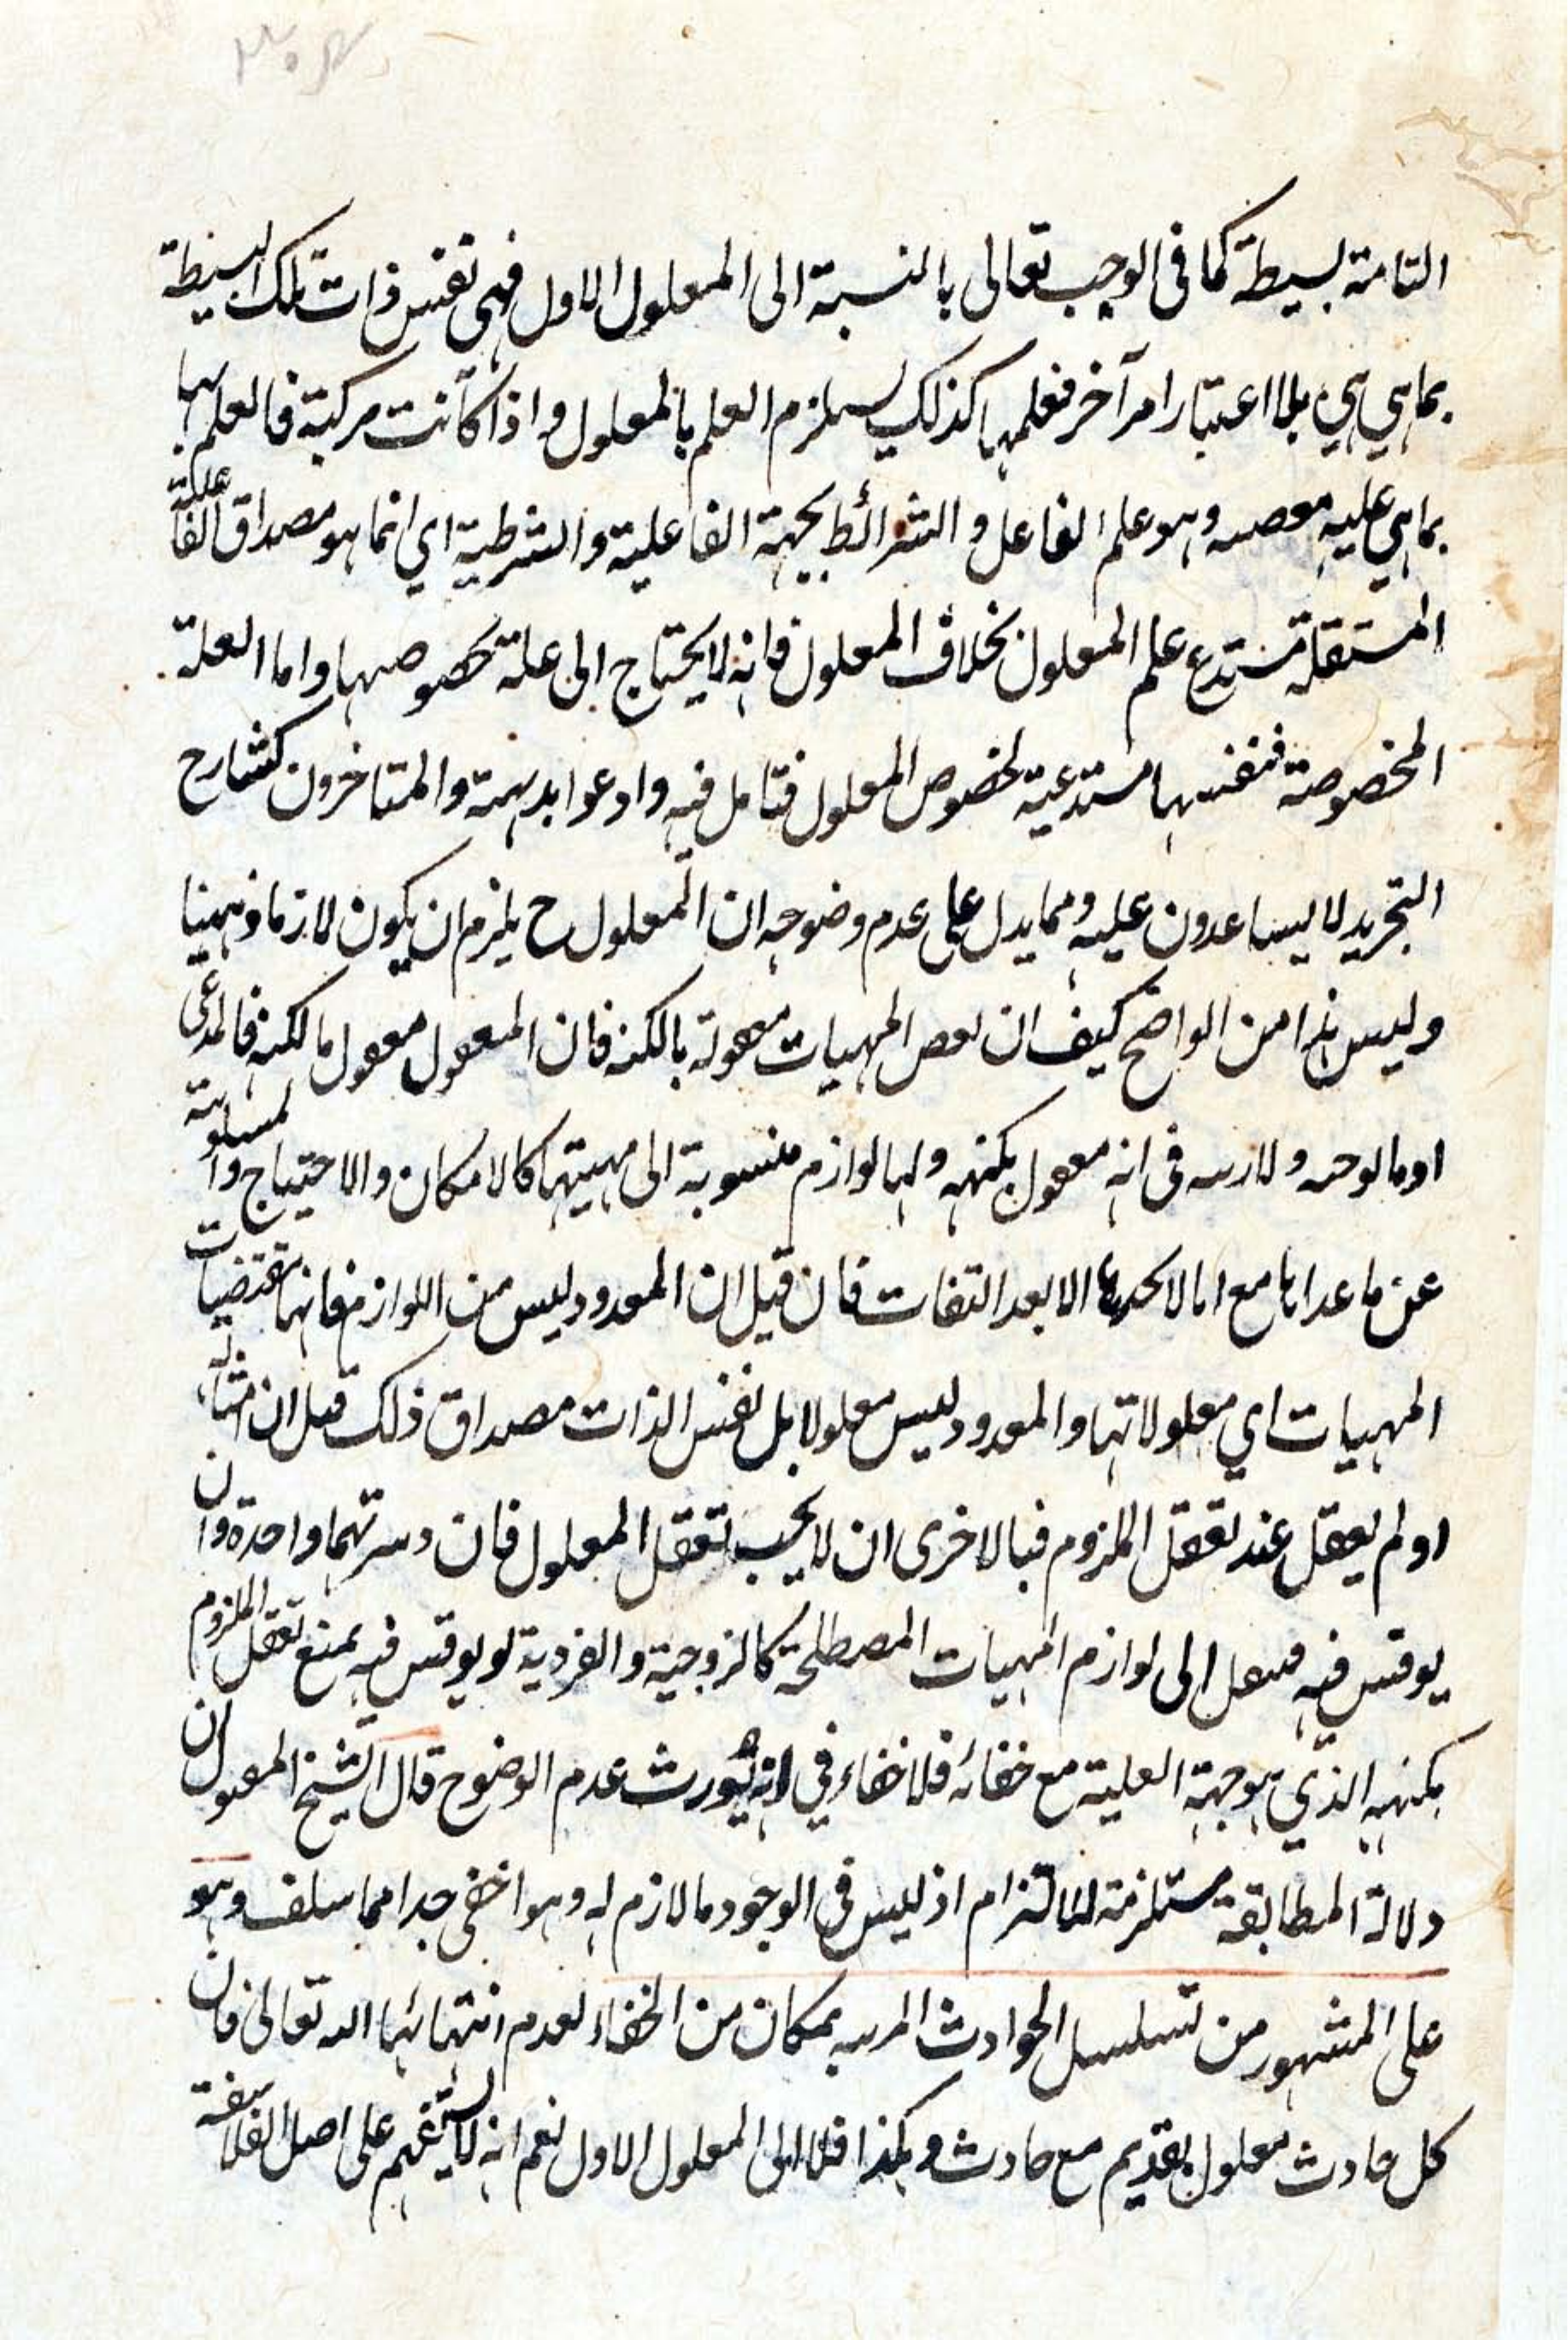 التامة بسيطة كما فى الوجب تعالى بالنسبة الى المعلول الاول فهى نفس ذات تلك البسيطة
بما هي هي بلا اعتبار امر آخر فعلمها كذلك يستلزم العلم بالمعلول واذا كانت مركبة فالعلم بها
بما هي عليه وهو علم الفاعل والشرائط بجهة الفاعلية والشرطية اي انما هو مصداق الفاعلية
المستقلة مستدع علم المعلول بخلاف المعلول فانه لا يحتاج الى علة بخصوصها واما العلة
المخصوصة فنفسها مستدعية لخصوص المعلول فتامل فيه وادعوا بديهته والمتاخرون كشارح
التجريد لا يساعدون عليه ومما يدل على عدم وضوحه ان المعلول ح يلزم ان يكون لازما ذهنيا
وليس هذا من الواضح كيف ان بعص المهيات معقولة بالكنه فان المعقول معقول بالكنه فالمدعى
او بالوجه ولا ريب فى انه معقول بكنهه ولها لوازم منسوبة الى مهيتها كالامكان والاحتياج والمسلوبية
عن ما عداها مع انا لا نجدها الا بعد التفات فان قيل ان المعدود ليس من اللوازم فانها مقتضيات
المهيات اي معلولاتها والمعدود ليس معلولا بل نفس الذات مصداق ذلك قيل ان امثاله
لو لم يعقل عند تعقل الملزوم فبالاخرى ان لا يجب تعقل المعلول فان وسرتهما واحدة وان
يوقش فيه فينقل الى لوازم المهيات المصطلحة كالزوجية والفردية لو يوقش فيه بمنع تعقل الملزوم
بكنهه الذي هو جهة العلية مع خفائه فلا خفاء في انه يورث عدم الوضوح قال الشيخ المقتول ان
دلالة المطابقة مستلزمة للالتزام اذ ليس فى الوجود ما لا لازم له وهو اخفى جدا مما سلف وهو
على المشهور من تسلسل الحوادث المرتبة بمكان من الخفاء لعدم انتهائها الله تعالى فان
كل حادث معلول بقديم مع حادث وهكذا فلا الى المعلول الاول نعم انه لا يستقيم على اصل الفلاسفة